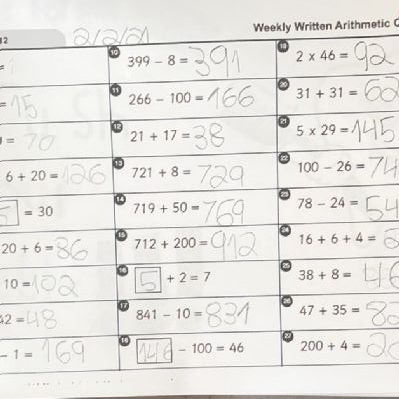 12 2/2/21 Weekly Written Arithmetic
= 15
= 70
6 + 20 = 126
5 = 30
20 + 6 = 86
10 = 102
42 = 48
- 1 = 169
10 399 - 8 = 391
11 266 - 100 = 166
12 21 + 17 = 38
13 721 + 8 = 729
14 719 + 50 = 769
15 712 + 200 = 912
16 5 + 2 = 7
17 841 - 10 = 831
18 146 - 100 = 46
19 2 x 46 = 92
20 31 + 31 = 62
21 5 x 29 = 145
22 100 - 26 = 74
23 78 - 24 = 54
24 16 + 6 + 4 =
25 38 + 8 = 46
26 47 + 35 = 82
27 200 + 4 = 20